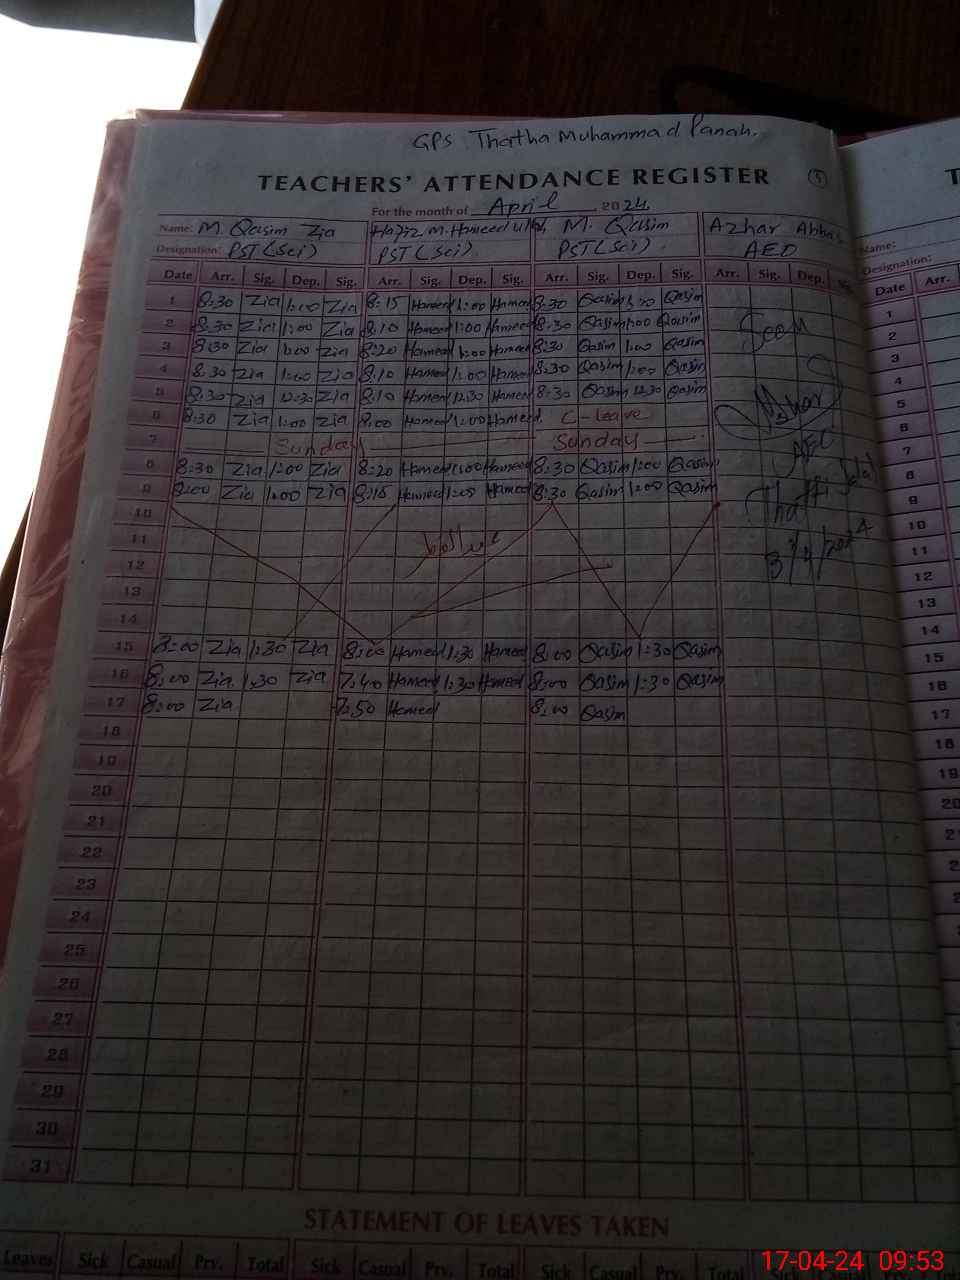 GPS Thatha Muhammad Panah.
TEACHERS' ATTENDANCE REGISTER
5
For the month of April 2024
Name: M. Qasim Zia Hafiz M. Hameed M. Qasim Azhar Abbas
Designation: PST(Sci) PST(Sci) PST(Sci) AEO
Date Arr. Sig. Dep. Sig. Arr. Sig. Dep. Sig. Arr. Sig. Dep. Sig. Arr. Sig. Dep. Sig.
1 8:30 Zia 1:00 Zia 8:15 Hameed 1:00 Hameed 8:30 Qasim 1:00 Qasim
2 8:30 Zia 1:00 Zia 8:10 Hameed 1:00 Hameed 8:30 Qasim 1:00 Qasim
3 8:30 Zia 1:00 Zia 8:20 Hameed 1:00 Hameed 8:30 Qasim 1:00 Qasim
4 8:30 Zia 1:00 Zia 8:10 Hameed 1:00 Hameed 8:30 Qasim 1:00 Qasim
5 8:30 Zia 12:30 Zia 8:10 Hameed 12:30 Hameed 8:30 Qasim 12:30 Qasim
6 8:30 Zia 1:00 Zia 8:00 Hameed 1:00 Hameed C-leave
7 Sunday Sunday
8 8:30 Zia 1:00 Zia 8:20 Hameed 1:00 Hameed 8:30 Qasim 1:00 Qasim
9 8:00 Zia 1:00 Zia 8:15 Hameed 1:00 Hameed 8:30 Qasim 1:00 Qasim
10
11 عید الفطر
12
13
14
15 8:00 Zia 1:30 Zia 8:00 Hameed 1:30 Hameed 8:00 Qasim 1:30 Qasim
16 8:00 Zia 1:30 Zia 7:40 Hameed 1:30 Hameed 8:00 Qasim 1:30 Qasim
17 8:00 Zia 7:50 Hameed 8:00 Qasim
18
19
20
21
22
23
24
25
26
27
28
29
30
31
Seen
Azhar
AEO
Thatti
3/4/2024
STATEMENT OF LEAVES TAKEN
Leaves Sick Casual Prv. Total Sick Casual Prv. Total Sick Casual Prv. Total
T
Name:
Designation:
Date Arr.
1
2
3
4
5
6
7
8
9
10
11
12
13
14
15
16
17
18
19
20
17-04-24 09:53